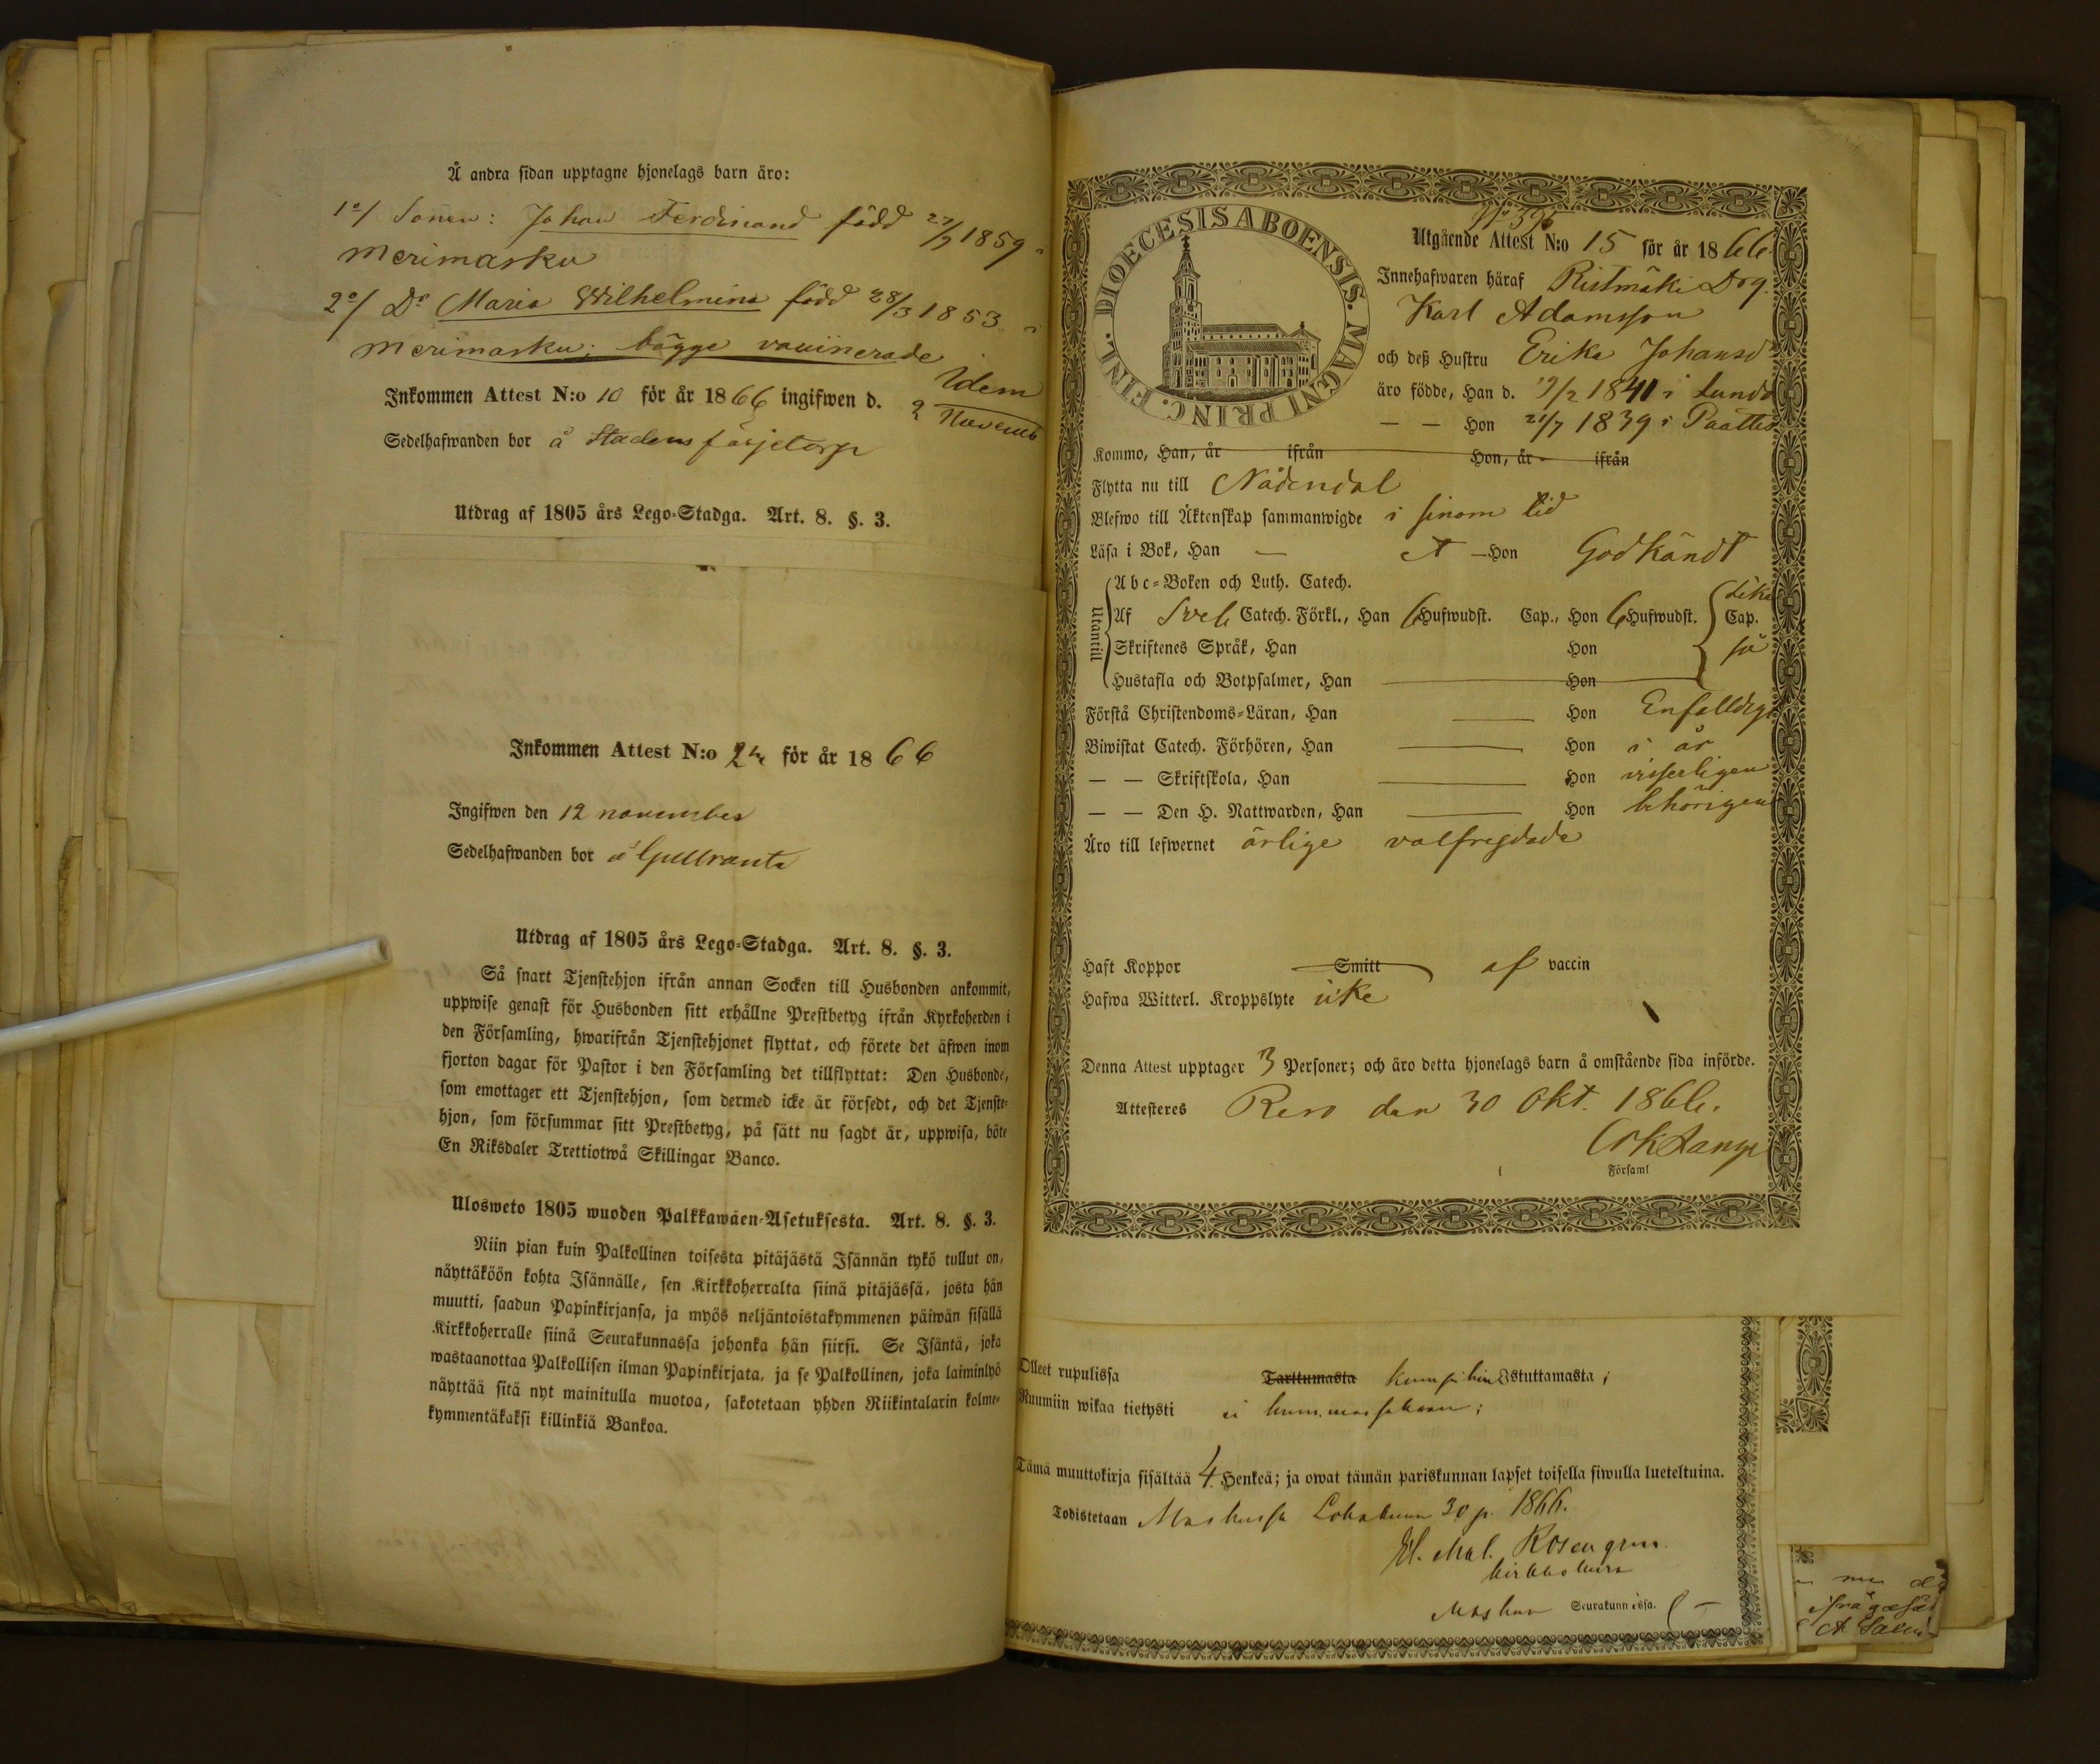 Å andra sidan upptagne hjonelags barn äro:
1o/ Sonen: Johan Ferdinand född 27/9 1859 i
Merimasku
2o/ Dr Maria Wilhelmina född 28/3 1853 i
Merimasku; bägge
Idem
Inkommen Attest N:o 10 för år 1866 ingifwen d. 2 Novemb
Sedelhafwanden bor å Stadens färjetorp
Utdrag af 1805 års Lego-Stadga. Art. 8. §. 3.
Inkommen Attest N:o för år 1866
Ingifwen den 12 november
Sedelhafwanden bor å Gullranta
Utdrag af 1805 års Lego-Stadga. Art. 8. §. 3.
Så snart Tjenstehjon ifrån annan Socken till Husbonden ankommit,
uppwise genast för Husbonden sitt erhållne Prestbetyg ifrån Kyrkoherden i
den Församling, hwarifrån Tjenstehjonet flyttat, och förete det äfwen inom
fjorton dagar för Pastor i den Församling det tillflyttat: Den Husbonde,
som emottager ett Tjenstehjon, som dermed icke är försedt, och det Tjenste-
hjon, som försummar sitt Prestbetyg, på sätt nu sagdt är, uppwisa, böte
En Riksdaler Trettiotwå Skillingar Banco.
Ulosweto 1805 wuoden Palkkawäen-Asetuksesta. Art. 8. §. 3.
Niin pian kuin Palkollinen toisesta pitäjästä Isännän tykö tullut on,
näyttäköön kohta Isännälle, sen Kirkkoherralta siinä pitäjässä, josta hän
muutti, saadun Papinkirjansa, ja myös neljäntoistakymmenen päiwän sisällä
Kirkkoherralle siinä Seurakunnassa johonka hän siirsi. Se Isäntä, joka
wastaanottaa Palkollisen ilman Papinkirjata, ja se Palkollinen, joka laiminlyö
näyttää sitä nyt mainitulla muotoa, sakotetaan yhden Riikintalarin kolme-
kymmentäkaksi killinkiä Bankoa.
DIOECESIS ABOENSIS. MAGNI PRINC. FINL.
Utgående Attest N:o 15 för år 1866.
Innehafwaren häraf Ristmäki Drg.
Karl Adamsson
och deß Hustru Erika Johansdr
äro födde, Han d. 1841 i Lundo
— — Hon 21/7 1839 i Paattis
Kommo, Han, år ifrån Hon, år ifrån
Flytta nu till Nådendal
Blefwo till Äktenskap sammanwigde i sinom tid
Läsa i Bok, Han — — Hon Godkändt
Utantill
Abc-Boken och Luth. Catech.
Af Sveb Catech. Förkl., Han 6 Hufwudst. Cap., Hon 6 Hufwudst. Cap.
Lika
så
Skriftenes Språk, Han Hon
Hustafla och Botpsalmer, Han Hon
Förstå Christendoms-Läran, Han Hon Enfaldigt
Biwistat Catech. Förhören, Han Hon i år
— — Skriftskola, Han Hon visserligen
— — Den H. Nattwarden, Han Hon behörigen
Äro till lefwernet ärlige välfrejdade
Haft Koppor Smitt af vaccin
Hafwa Witterl. Kroppslyte icke
Denna Attest upptager 3 Personer; och äro detta hjonelags barn å omstående sida införde.
Attesteres Reso den 30 Okt. 1866.
Församl
Olleet rupulissa Tarttumasta Istuttamasta;
Ruumiin wikaa tietysti ei
Tämä muuttokirja sisältää 4 Henkeä; ja owat tämän pariskunnan lapset toisella siwulla lueteltuina.
Todistetaan Maskussa Lokakuun 30 p. 1866.
Rosengren
kirkkoherra
Maskun Seurakunnassa.